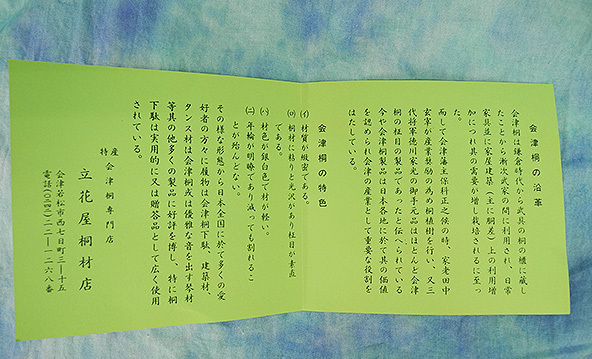 会津桐の沿革
会津桐は鎌倉時代から武具の桐の櫃に蔵し
たことから漸次武家の間に利用され、日常
家具並に家屋建築(主に胴差)上の利用増
加につれ其の需要が増し栽培されるに至っ
た。
而して会津藩主保科正之侯の時、家老田中
玄宰が産業奨励の為め桐植樹を行い、又三
代将軍徳川家光の御手元品はほとんど会津
桐の柾目の製品であったと伝へられている
今や会津桐製品は日本各地に於て其の価値
を認められ会津の産業として重要な役割を
はたしている。
会津桐の特色
(イ) 材質が緻密である。
(ロ) 桐材に粘りと光沢があり柾目が素直
である。
(ハ) 材色が銀白色で材が軽い。
(ニ) 年輪が明瞭であり減っても割れるこ
とが殆んどない。
その様な形態から日本全国に於て多くの愛
好者の方々に履物は会津桐下駄、建築材、
タンス材は会津桐又は優雅な音を出す琴材
等其の他多くの製品に好評を博し、特に桐
下駄は実用的に又は贈答品として広く使用
されている。
特産 会津桐専門店
立花屋桐材店
会津若松市西七日町三―十五
電話(〇二四二)二二―一二六八番